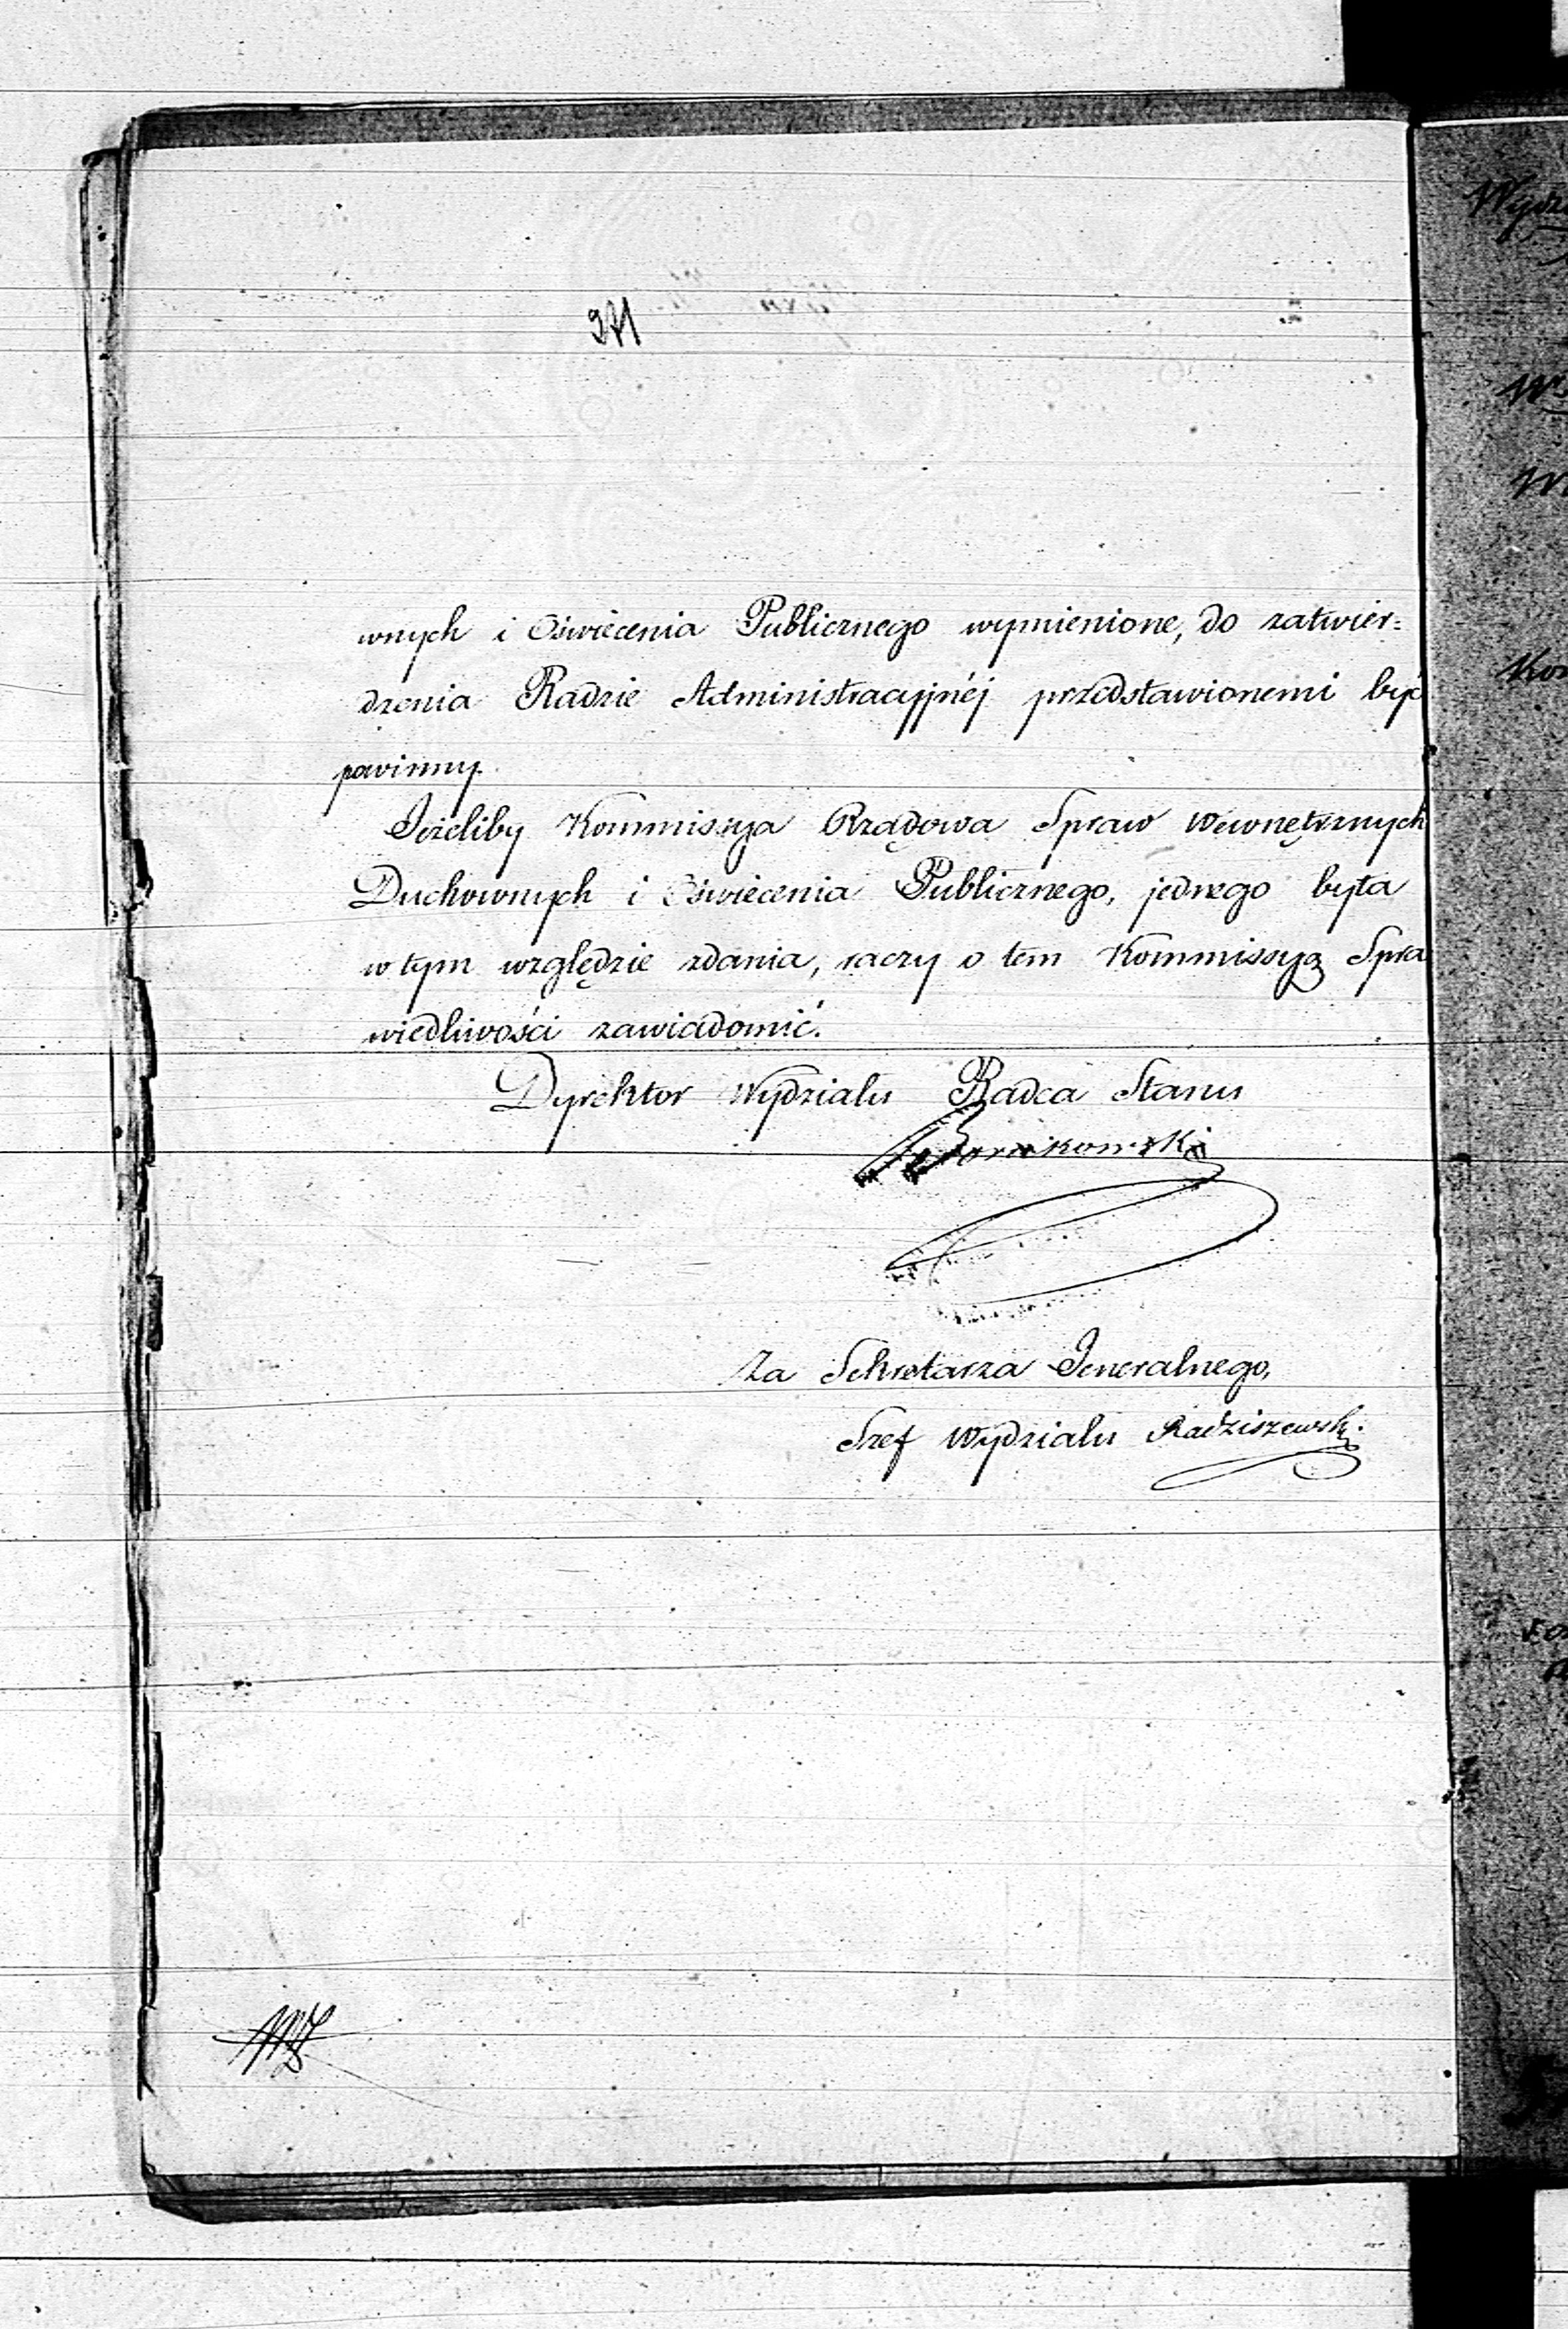 971
wnych i Oświecenia Publicznego wymienione, do zatwier=
dzenia Radzie Administracyjnéj przedstawionemi być
powinny.
Jeżeliby Kommissya Rządowa Spraw Wewnętrznych
Duchownych i Oświecenia Publicznego, jednego była
w tym względzie zdania, raczy o tem Kommissyą Spra
wiedliwości zawiadomić.
Dyrektor Wydziału Radca Stanu
Za Sekretarza Jeneralnego,
Szef Wydziału Radziszewski.